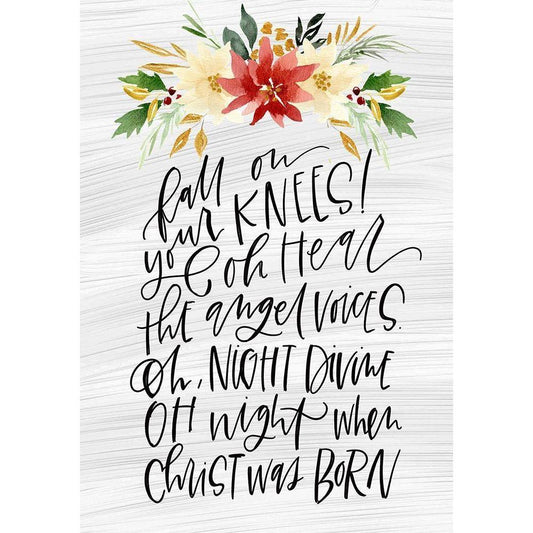 fall on
your KNEES!
oh Hear
the angel voices.
Oh, NIGHT DiviNe
OH night when
CHRiST was BORN